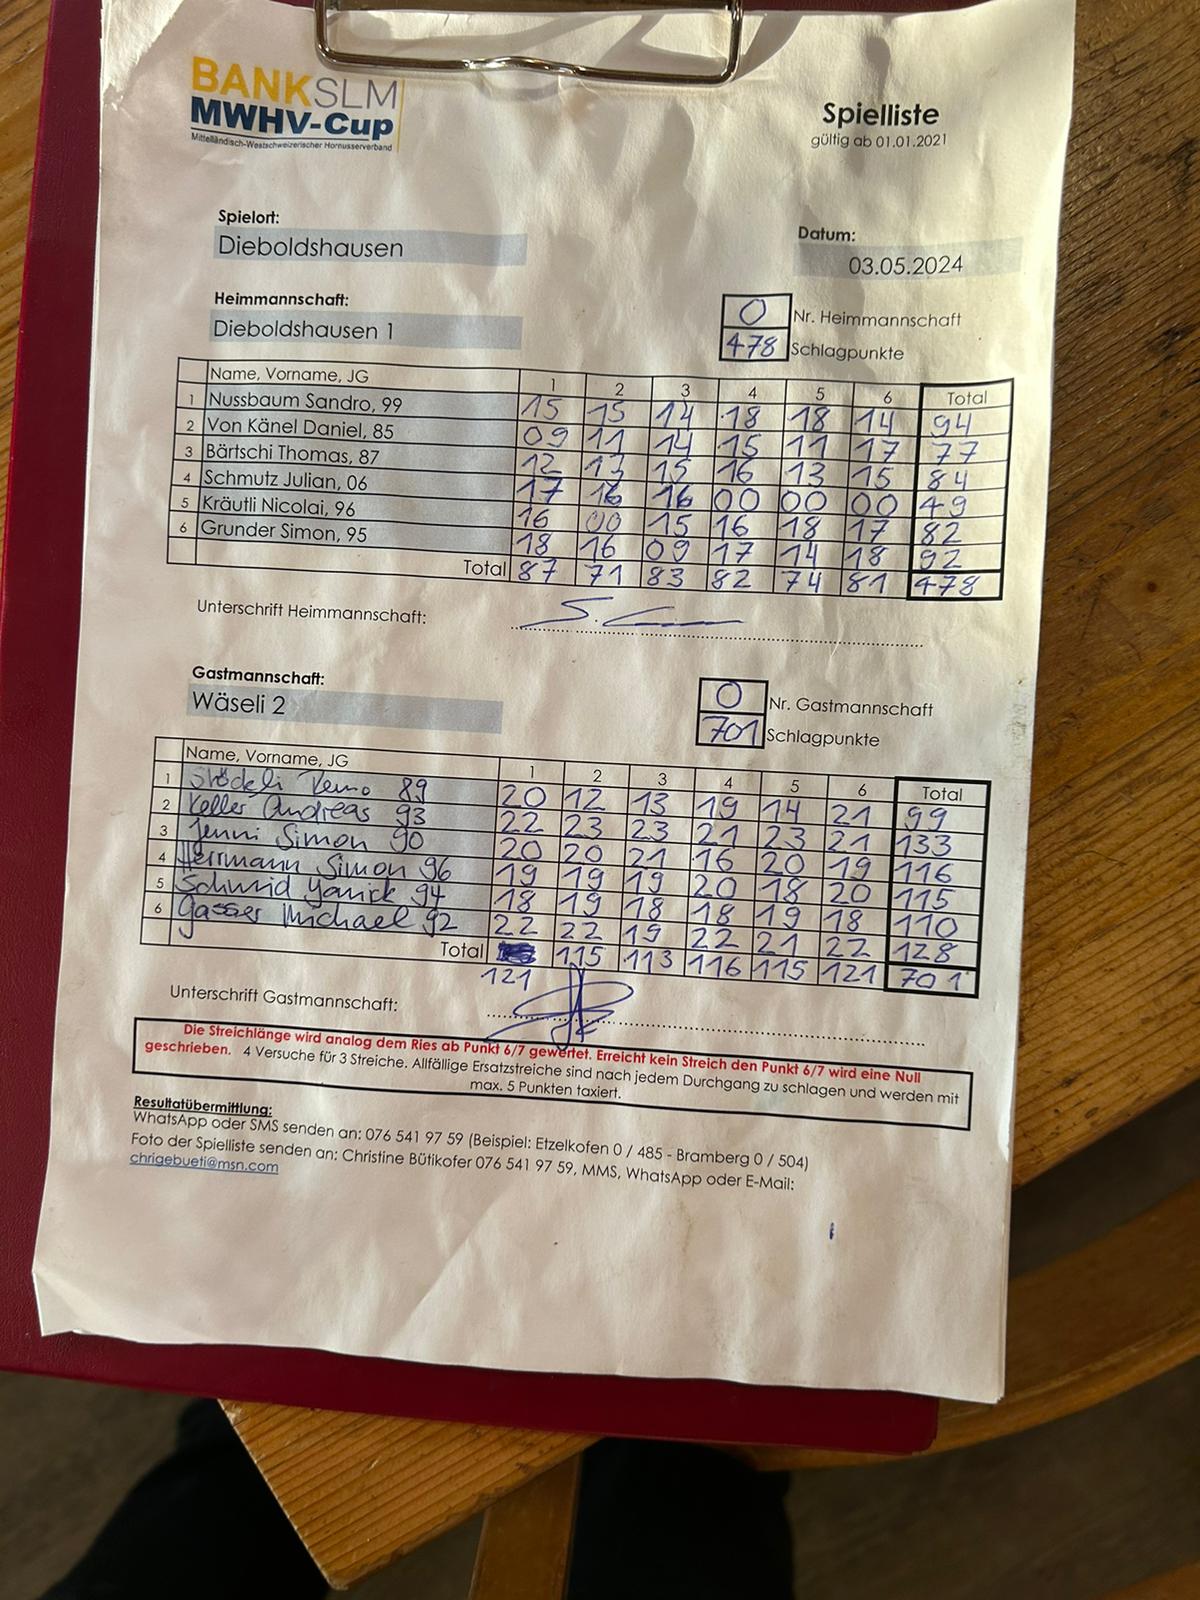 BANKSLM
MWHV-Cup
Mittelländisch-Westschweizerischer Hornusserverband
Spielliste
gültig ab 01.01.2021
Spielort:
Dieboldshausen
Datum:
03.05.2024
Heimmannschaft:
Dieboldshausen 1
0 Nr. Heimmannschaft
478 Schlagpunkte
Name, Vorname, JG 1 2 3 4 5 6 Total
1 Nussbaum Sandro, 99 15 15 14 18 18 14 94
2 Von Känel Daniel, 85 09 11 14 15 11 17 77
3 Bärtschi Thomas, 87 12 13 15 16 13 15 84
4 Schmutz Julian, 06 17 16 16 00 00 00 49
5 Kräutli Nicolai, 96 16 00 15 16 18 17 82
6 Grunder Simon, 95 18 16 09 17 14 18 92
Total 87 71 83 82 74 81 478
Unterschrift Heimmannschaft:
Gastmannschaft:
Wäseli 2
0 Nr. Gastmannschaft
701 Schlagpunkte
Name, Vorname, JG 1 2 3 4 5 6 Total
1 89 20 12 13 19 14 21 99
2 Keller Andreas 93 22 23 23 21 23 21 133
3 Jenni Simon 90 20 20 21 16 20 19 116
4 Herrmann Simon 96 19 19 19 20 18 20 115
5 Schmid Yanick 94 18 19 18 18 19 18 110
6 Gasser Michael 92 22 22 19 22 21 22 128
Total 115 113 116 115 121 701
121
Unterschrift Gastmannschaft:
Die Streichlänge wird analog dem Ries ab Punkt 6/7 gewertet. Erreicht kein Streich den Punkt 6/7 wird eine Null
geschrieben. 4 Versuche für 3 Streiche. Allfällige Ersatzstreiche sind nach jedem Durchgang zu schlagen und werden mit
max. 5 Punkten taxiert.
Resultatübermittlung:
WhatsApp oder SMS senden an: 076 541 97 59 (Beispiel: Etzelkofen 0 / 485 - Bramberg 0 / 504)
Foto der Spielliste senden an: Christine Bütikofer 076 541 97 59, MMS, WhatsApp oder E-Mail:
chrigebueti@msn.com